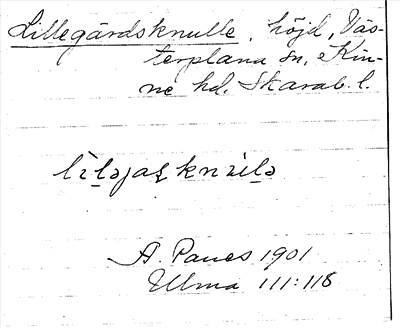 Lillegårdsknulle, höjd, Väs-
terplana sn, Kin-
ne hd. Skarab. l.
lìl̠əjaʂ knùl̠ə
A. Panes 1901
Ulma 111:118